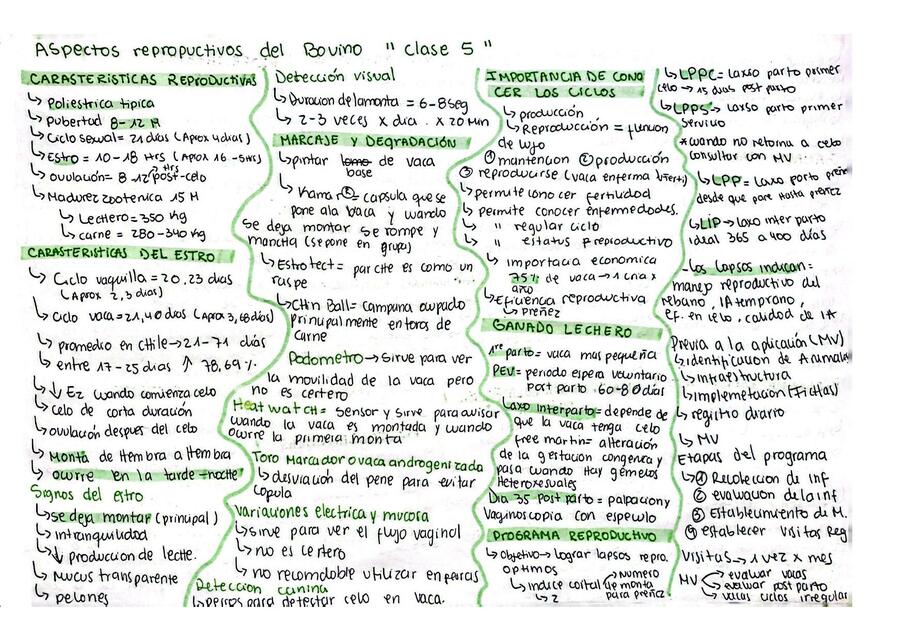 Aspectos repropuctivos del Bovino "clase 5"
CARASTERISTICAS REPRODUCTIVAS
↳ Poliestrica tipica
↳ Pubertad 8-12 M
↳ Ciclo sexual = 21 dias (Aprox 4dias)
↳ Estro = 10-18 Hrs (Aprox 16 -5Hrs)
↳ ovulación = 8-12 Hrs post-celo
↳ Madurez zootecnica 15 M
↳ Lechero = 350 Kg
↳ carne = 280-340 Kg
CARASTERISTICAS DEL ESTRO
↳ Ciclo vaquilla = 20.23 dias
(Aprox 2,3 dias)
↳ Ciclo vaca = 21,40 dias (Aprox 3,68 dias)
↳ promedio en chile → 21-71 dias
↳ entre 17-25 dias ↑ 78,69%
↳ ↓ E2 cuando comienza celo
↳ celo de corta duración
↳ ovulación despues del celo
↳ Monta de Hembra a Hembra
↳ ocurre en la tarde-noche
Signos del estro
↳ se deja montar (principal)
↳ intranquilidad
↳ ↓ produccion de leche.
↳ Mucus transparente
↳ pelones
Detección visual
↳ Duracion de la monta = 6-8 seg
↳ 2-3 veces x dia. x 20 min
MARCAJE Y DEGRADACIÓN
↳ pintar base de vaca
↳ Kamar® = capsula que se
pone ala vaca y cuando
se deja montar se rompe y
mancha (se pone en grupa)
↳ Estrotect = parche es como un
raspe
↳ Chin Ball = campana ocupado
principalmente en toros de
carne
Podometro → sirve para ver
la movilidad de la vaca pero
no es certero
Heat watch = sensor y sirve para avisar
cuando la vaca es montada y cuando
ocurre la primera monta
Toro Marcador o vaca androgenizada
↳ desviación del pene para evitar
copula
Variaciones electrica y mucosa
↳ sirve para ver el flujo vaginal
↳ no es certero
↳ no recomdable utilizar en
Deteccion canina
↳ perros para detectar celo en vaca.
IMPORTANCIA DE CONO
CER LOS CICLOS
↳ producción
↳ Reproducción = funcion
de lujo
① mantencion ② producción
③ reproducirse (vaca enferma
↳ permite conocer fertilidad
↳ permite conocer enfermedades.
↳ " regular ciclo
↳ " estatus reproductivo
↳ importacia economica
75% de vaca → 1 cria x
año
↳ Eficiencia reproductiva
↳ preñez
GANADO LECHERO
1er parto = vaca mas pequeña
PEV = periodo espera voluntario
post parto 60-80 dias
Laxo interparto = depende de
que la vaca tenga celo
free martin = alteración
de la gestacion congenita y
pasa cuando Hay gemelos
Heterosexuales
Dia 35 post parto = palpacion y
Vaginoscopia con espeulo
PROGRAMA REPRODUCTIVO
↳ Objetivo → lograr lapsos repro.
optimos
↳ indice coital → Numero
de monta
para preñez
↳ 2
↳ LPPC = Laxso parto primer
celo → 15 dias post parto
↳ LPPS = laxso parto primer
servicio
* cuando no retorna a celo
consultar con MV
↳ LPP = Laxo parto preñe
desde que pare Hasta preñez
↳ LIP → laxo inter parto
ideal 365 a 400 días
- Los lapsos indican =
manejo reproductivo del
rebano, IA temprano,
ef. en celo, calidad de IA
Previa a la aplicación (MV)
↳ identificacion de Animale
↳ infraestructura
↳ implemetación (Fichas)
↳ registro diario
↳ MV
Etapas del programa
↳ ① Recoleccion de inf
② evaluacion de la inf
③ Establecimiento de M.
④ establecer Visitas Reg
Visitas → 1 vez x mes
MV evaluar vacas
evaluar post parto
vacas ciclos irregular